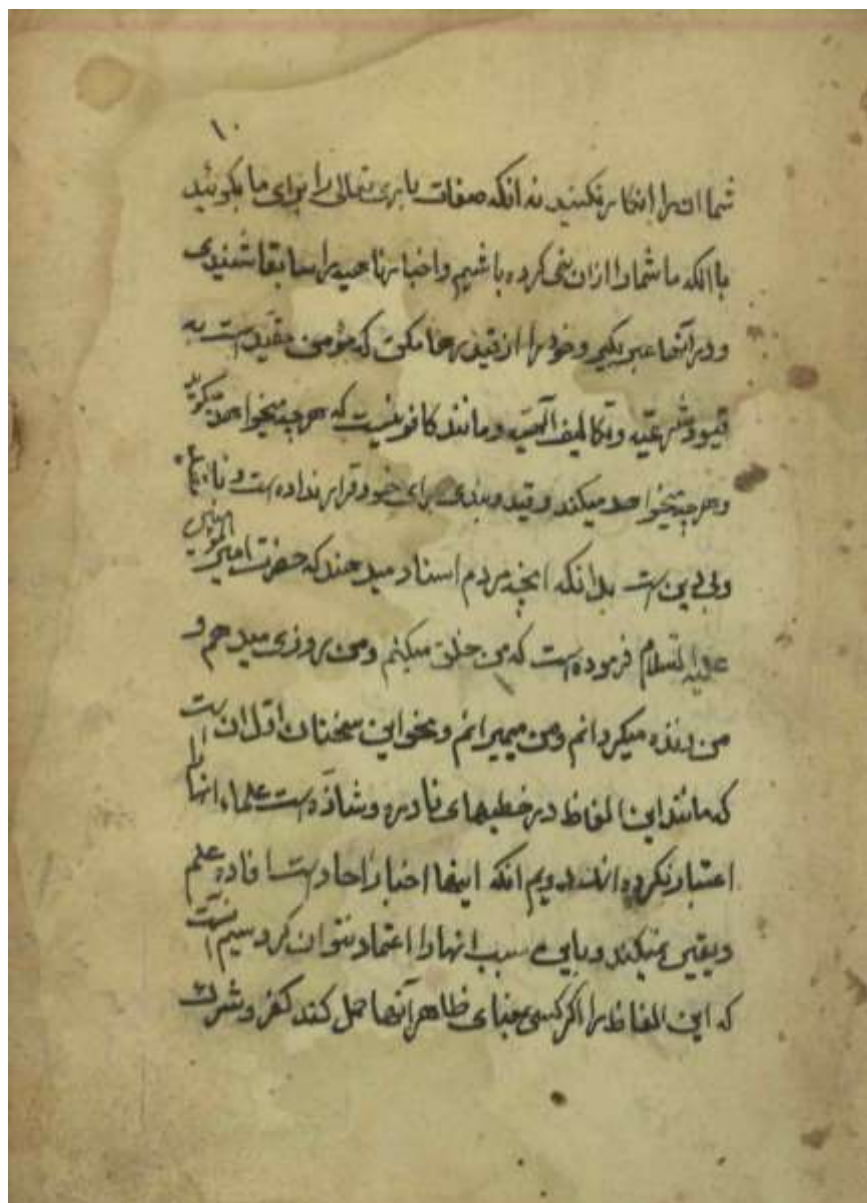 ۱۰
شما انرا انکار نکنید نه انکه صفات باری تعالی را برای ما بکوئید
با انکه ما شما را ازان نهی کرده باشیم و اخبار ناهیه را سابقا شنیدی
و در آنها عبر بکیر و خود را از قید رها مکن که مؤمن مقیدست به
قیود شرعیّه و تکالیف آلهیّه و مانند کافر نیست که هر چه میخواهد میکوید
و هر چه میخواهد میکند و قید و بندی برای خود قرار نداده است و
و بی دین ست بدانکه انچه مردم اسناد میدهند که حضرت امیر المؤمنین
علیه السّلام فرموده است که من خلق میکنم و من روزی میدهم و
من زنده میکردانم و من میمیرانم و نحو این سخنان اوّل ان ست
که مانند این الفاظ در خطبهای نادره و شاذّه ست علماء انها را
اعتبار نکرده اند دویم انکه اینها اخبار احاد ست افاده علم
و یقین نمیکند و باین سبب انها را اعتماد نتوان کرد سیم آنست
که این الفاظ را اکر کسی بمعنای ظاهر آنها حمل کند کفر و شرک